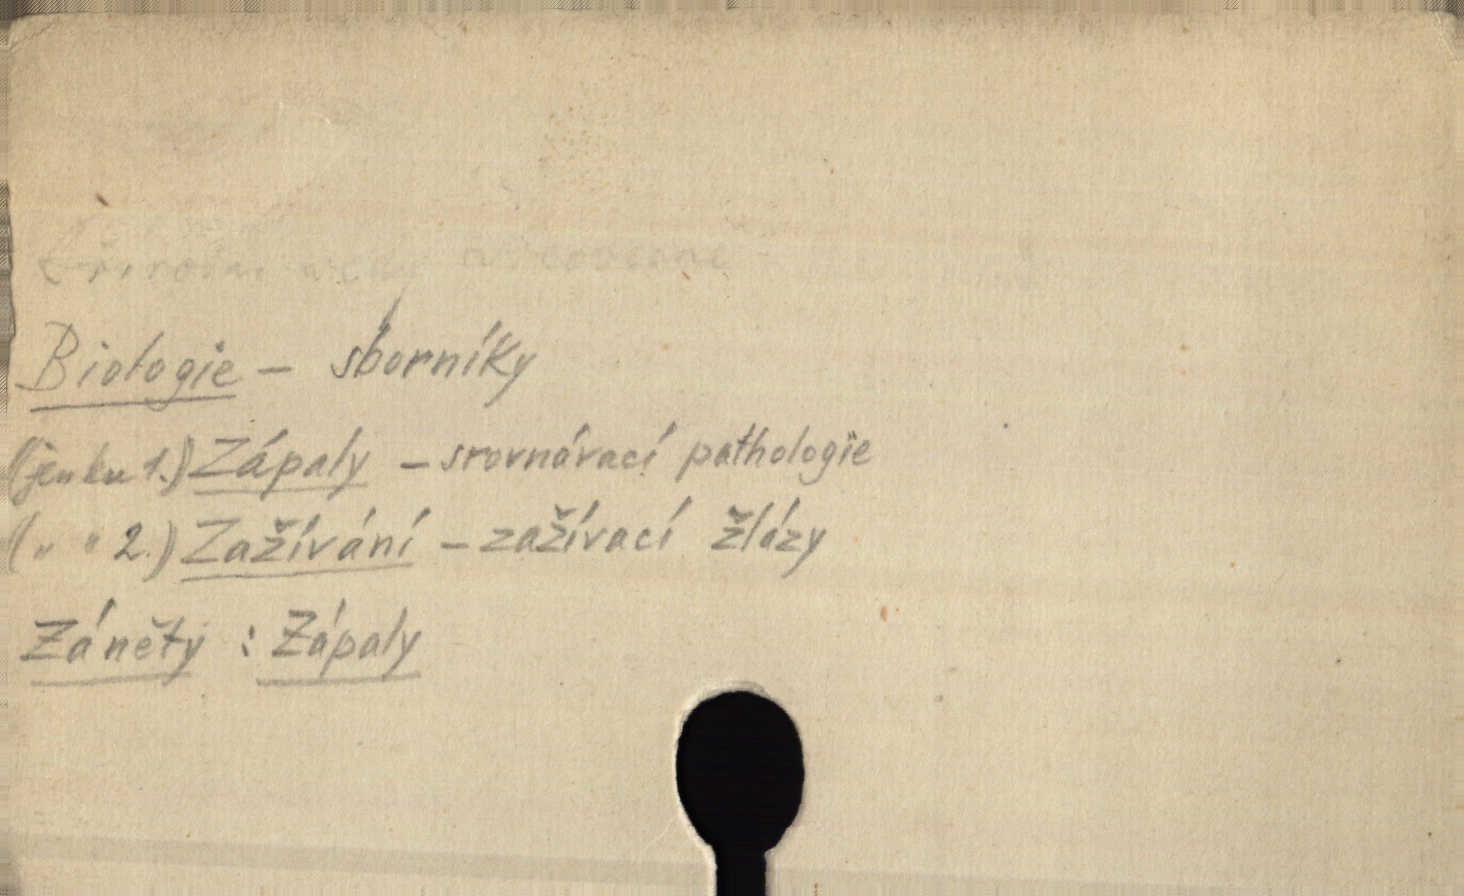 Biologie – sborníky
(jen ku 1.) Zápaly – srovnávací pathologie
(„ „ 2.) Zažívání – zažívací žlázy
Záněty : Zápaly